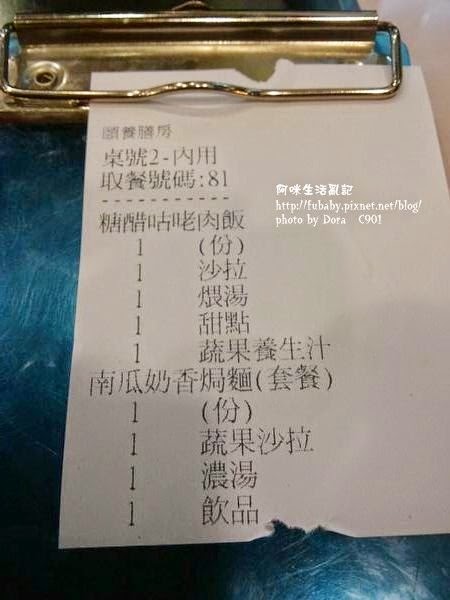 頤養膳房
桌號2-內用
取餐號碼:81
-----------
糖醋咕咾肉飯
1 (份)
1 沙拉
1 煨湯
1 甜點
1 蔬果養生汁
南瓜奶香焗麵(套餐)
1 (份)
1 蔬果沙拉
1 濃湯
1 飲品
阿咪生活亂記
http://fubaby.pixnet.net/blog/
photo by Dora C901